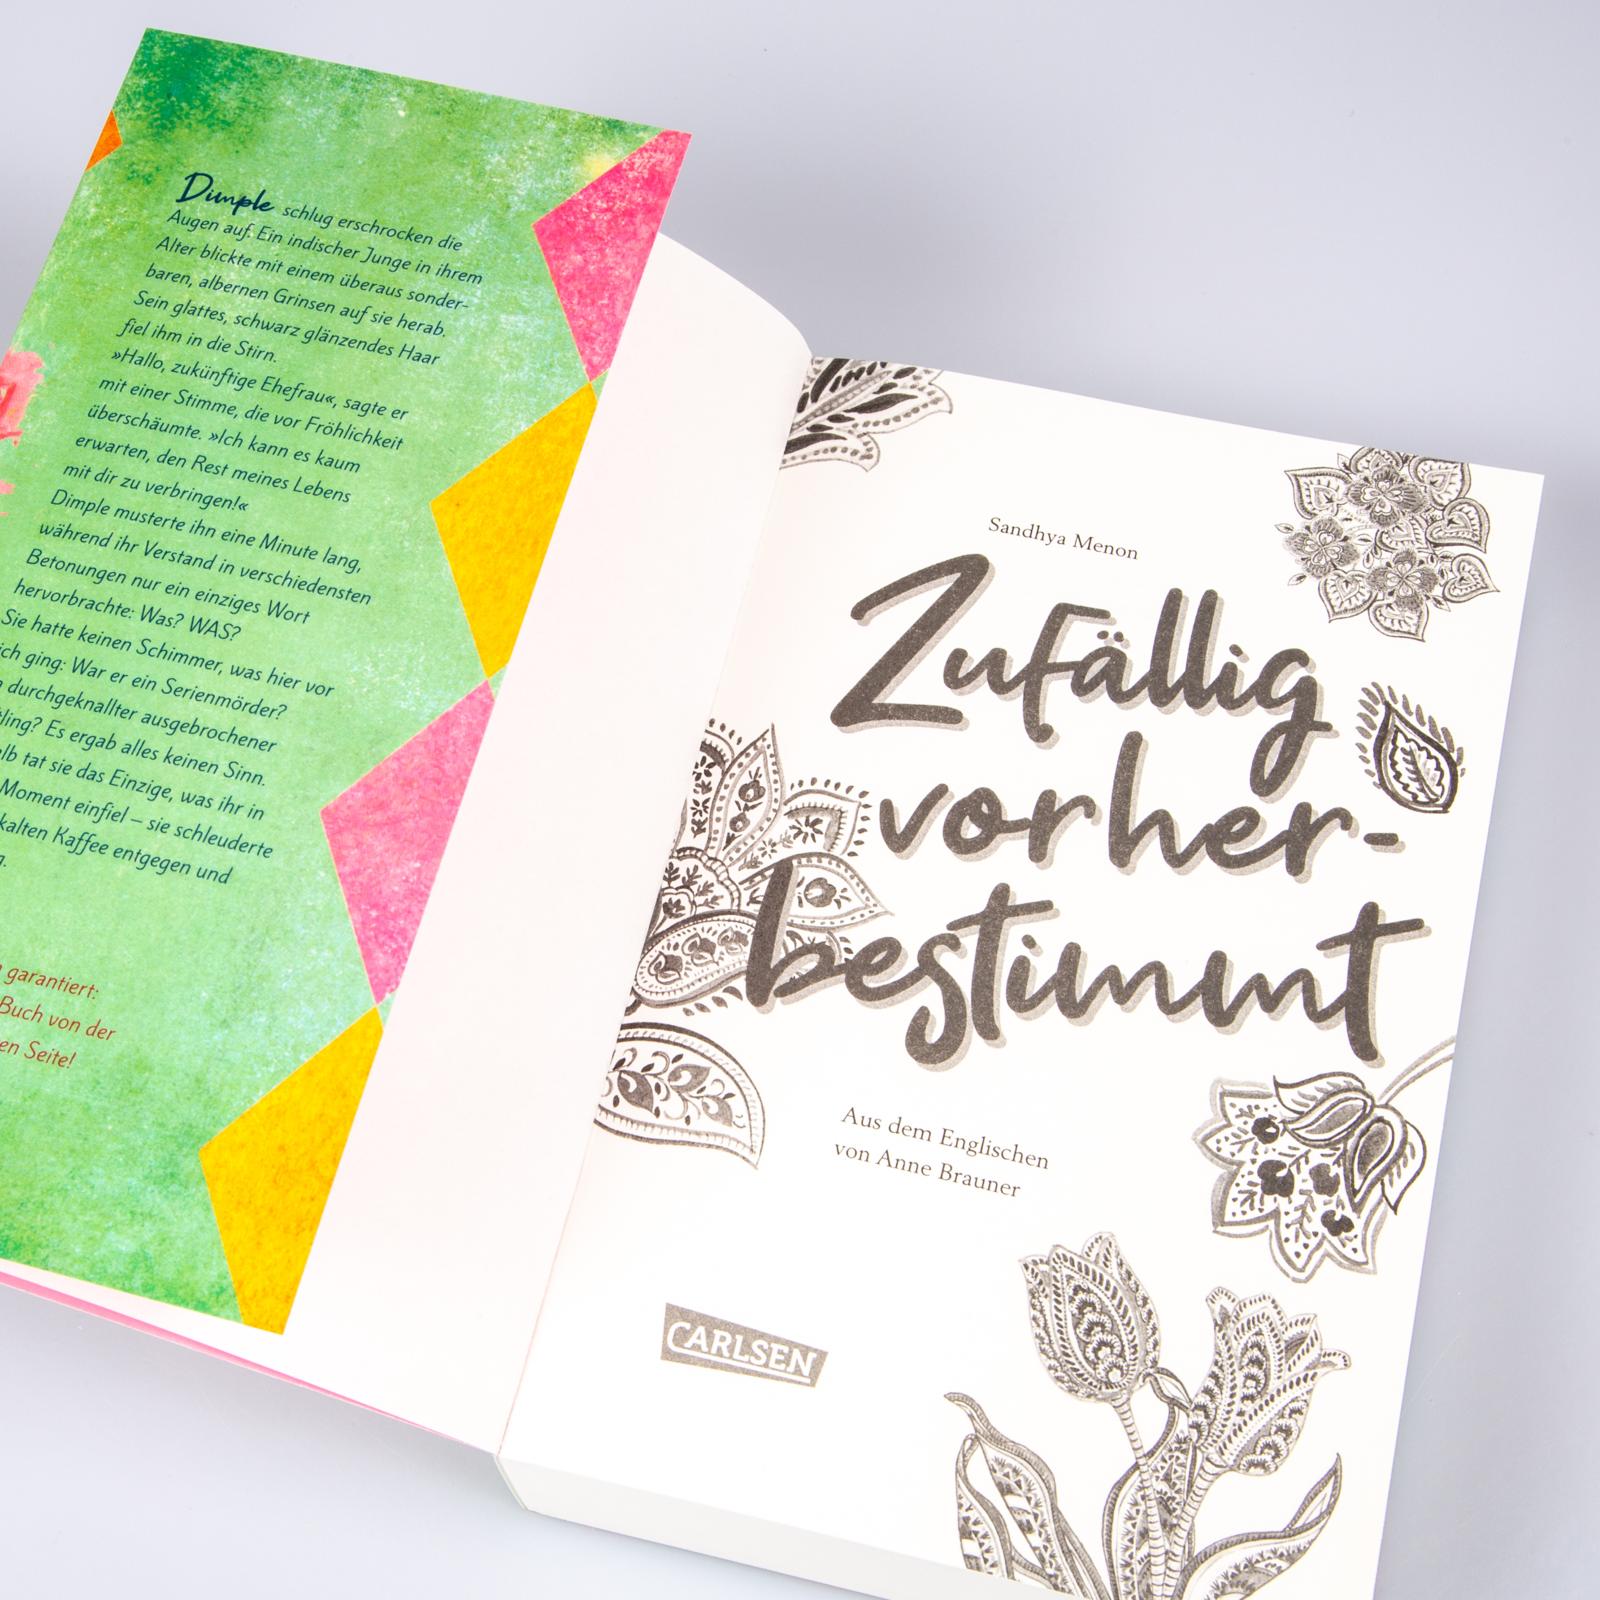 Dimple schlug erschrocken die
Augen auf. Ein indischer Junge in ihrem
Alter blickte mit einem überaus sonder-
baren, albernen Grinsen auf sie herab.
Sein glattes, schwarz glänzendes Haar
fiel ihm in die Stirn.
»Hallo, zukünftige Ehefrau«, sagte er
mit einer Stimme, die vor Fröhlichkeit
überschäumte. »Ich kann es kaum
erwarten, den Rest meines Lebens
mit dir zu verbringen!«
Dimple musterte ihn eine Minute lang,
während ihr Verstand in verschiedensten
Betonungen nur ein einziges Wort
hervorbrachte: Was? WAS?
Sie hatte keinen Schimmer, was hier vor
ich ging: War er ein Serienmörder?
durchgeknallter ausgebrochener
ling? Es ergab alles keinen Sinn.
lb tat sie das Einzige, was ihr in
Moment einfiel – sie schleuderte
kalten Kaffee entgegen und
g.
garantiert:
Buch von der
en Seite!
Sandhya Menon
Zufällig
vorher-
bestimmt
Aus dem Englischen
von Anne Brauner
CARLSEN